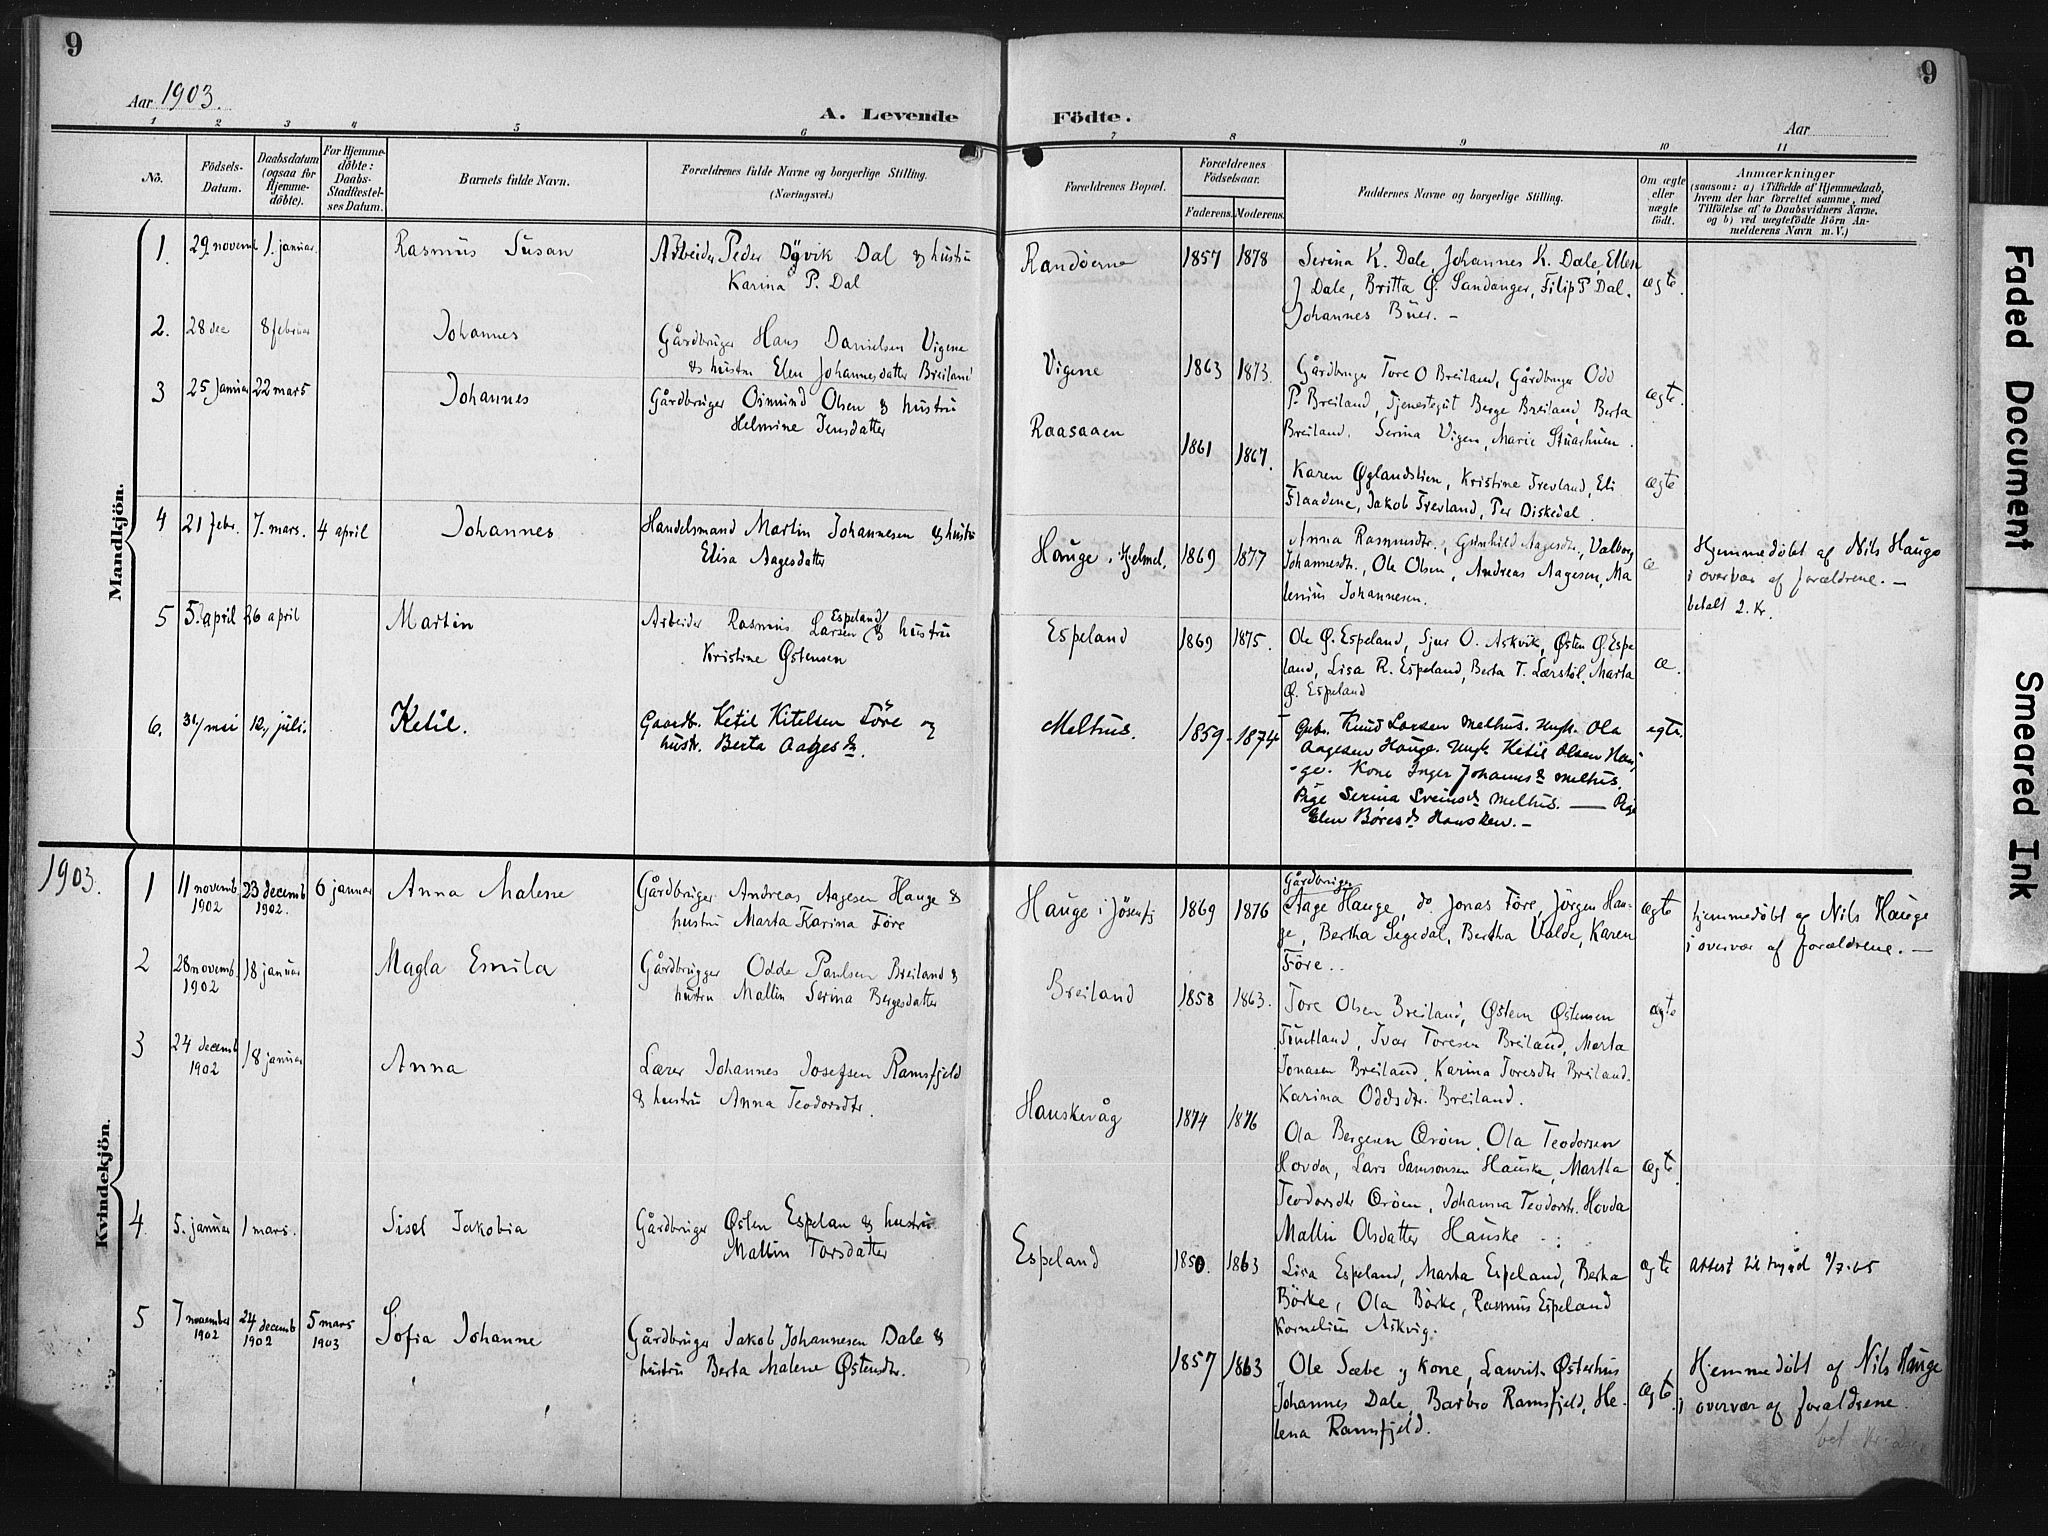 9
9
Aar 1903.
A. Levende Födte.
Aar
1 2 3 4 5 6 7 8 9 10 11
No.
Födsels-
Datum.
Daabsdatum
(ogsaa for
Hjemme-
döbte).
For Hjemme-
döbte:
Daabs-
Stadfæstel-
ses Datum.
Barnets fulde Navn.
Forældrenes fulde Navne og borgerlige Stilling.
(Næringsvei.)
Forældrenes Bopæl.
Forældrenes
Födselsaar.
Faderens. Moderens.
Faddernes Navne og borgerlige Stilling.
Om ægte
eller
uægte
födt.
Anmærkninger
(saasom: a) i Tilfælde af Hjemmedaab,
hvem der har forrettet samme, med
Tilföielse af to Daabsvidners Navne.
og b) ved uægtefödte Börn An-
melderens Navn m. V.)
Mandkjön.
1. 29. novemb 1. januar Rasmus Susan
Arbeider Peder Døvik Dal & hustru
Karina P. Dal
Randøerne 1857 1878
Serina K. Dale, Johannes K. Dale, Ellen
J Dale, Britta Ø. Sandanger, Filip P Dal.
Johannes Büer. –
ægte.
2. 28 dec 8 februar Johannes
Gårdbruger Hans Danielsen Vigene
& hustru Elen Johannesdatter Breiland
Vigene 1863 1873.
Gårdbruger Tore O Breiland, Gårdbruger Odd
P. Breiland, Tjenestegut Berge Breiland, Berta
Breiland. Serina Vigen, Marie
ægte.
3 25 januar 22 mars Johannes
Gårdbruger Osmund Olsen & hustru
Helmine Jensdatter
Raasaaen 1861 1867.
Karen Øglandslien, Kristine Trevland, Eli
Flaadene, Jakob Trevland, Per Diskedal.
ægte
4 21 febr. 7. mars. 4 april Johannes
Handelsmand Martin Johannesen & hustru
Elisa Aagesdatter
Hauge i Hjelmel. 1869 1877
Anna Rasmusdtr., Gunhild Aagesdtr., Valborg
Johannesdtr., Ole Olsen, Andreas Aagesen, Ma
lenius Johannesen.
æ
Hjemmedøbt af Nils Hauge
i overvær af forældrene. –
betalt 2. Kr.
5 5. april 26 april Martin
Arbeider Rasmus Larsen Espeland & hustru
Kristine Østensen
Espeland 1869 1875.
Ole Ø. Espeland, Sjur O. Askvik, Østen Ø. Espe
land, Lisa R. Espeland, Berta T. Lærstøl, Marta
Ø. Espeland
æ.
6. 31/ mei 12, juli. Ketil.
Gaardb. Ketil Kitelsen Före og
hustr. Berta Aagesdr.
Melhus. 1859 - 1874
Gbr. Knud Larsen Melhus. Ungk. Ola
Aagesen Hauge. Ungk. Ketil Olsen Hau
-ge. Kone Inger Johannesdr Melhus.
Pige Serina Sveinsdr Melhus. — Pige
Elen Børesdr Hausken. –
egte.
1903.
Kvindekjön.
1 11 novemb 1902 23 decemb 1902. 6 januar Anna Malene
Gårdbruger Andreas Aagesen Hauge &
hustru Marta Karina Före
Hauge i Jösenfj 1869 1876
Gårdbruger
Aage Hauge, do Jonas Före, Jörgen Hau-
ge, Bertha Segedal, Bertha Valde, Karen
Före..
ægte
hjemmedøbt af Nils Hauge
i overvær af forældrene. –
2 28 novemb. 1902 18 januar Magla Emila
Gårdbrugger Odde Paulsen Breiland &
hustru Mallin Serina Bergesdatter
Breiland 1858 1863.
Tore Olsen Breiland, Østen Østensen
Tuntland, Ivar Toresen Breiland, Marta
Jonasen Breiland, Karina Toresdtr Breiland.
Karina Oddsdtr. Breiland.
ægte
3 24 decemb 1902 18 januar Anna
Lærer Johannes Josefsen Ramsfjeld
& hustru Anna Teodorsdtr.
Hauskevåg 1874 1876
Ola Bergesen Ørøen, Ola Teodorsen
Hovda, Lars Samsonsen Hauske, Martha
Teodorsdtr Ørøen, Johanna Teodorstr. Hovda
Mallin Olsdatter Hauske
ægte
4 5. januar 1 mars. Sisel Jakobia
Gårdbruger Østen Espelan & hustru
Mallin Torsdatter
Espeland 1850. 1863
Lisa Espeland, Marta Espeland, Berta
Börke, Ola Börke, Rasmus Espeland
Kornelius Askvig.
ægte
5 7 november 1902 24 decemb 1902 5 mars 1903 Sofia Johanne
Gårdbruger Jakob Johannesen Dale &
hustru Berta Malene Østensdtr.
1857 1863
Ole Sæbe og kone, Laurits Østerhus
Johannes Dale, Barbro Ramsfjeld, He-
lena Ramsfjeld.
ægte.
Hjemmedøbt af Nils Hauge
i overvær af forældrene.
Faded Document
Smeared Ink